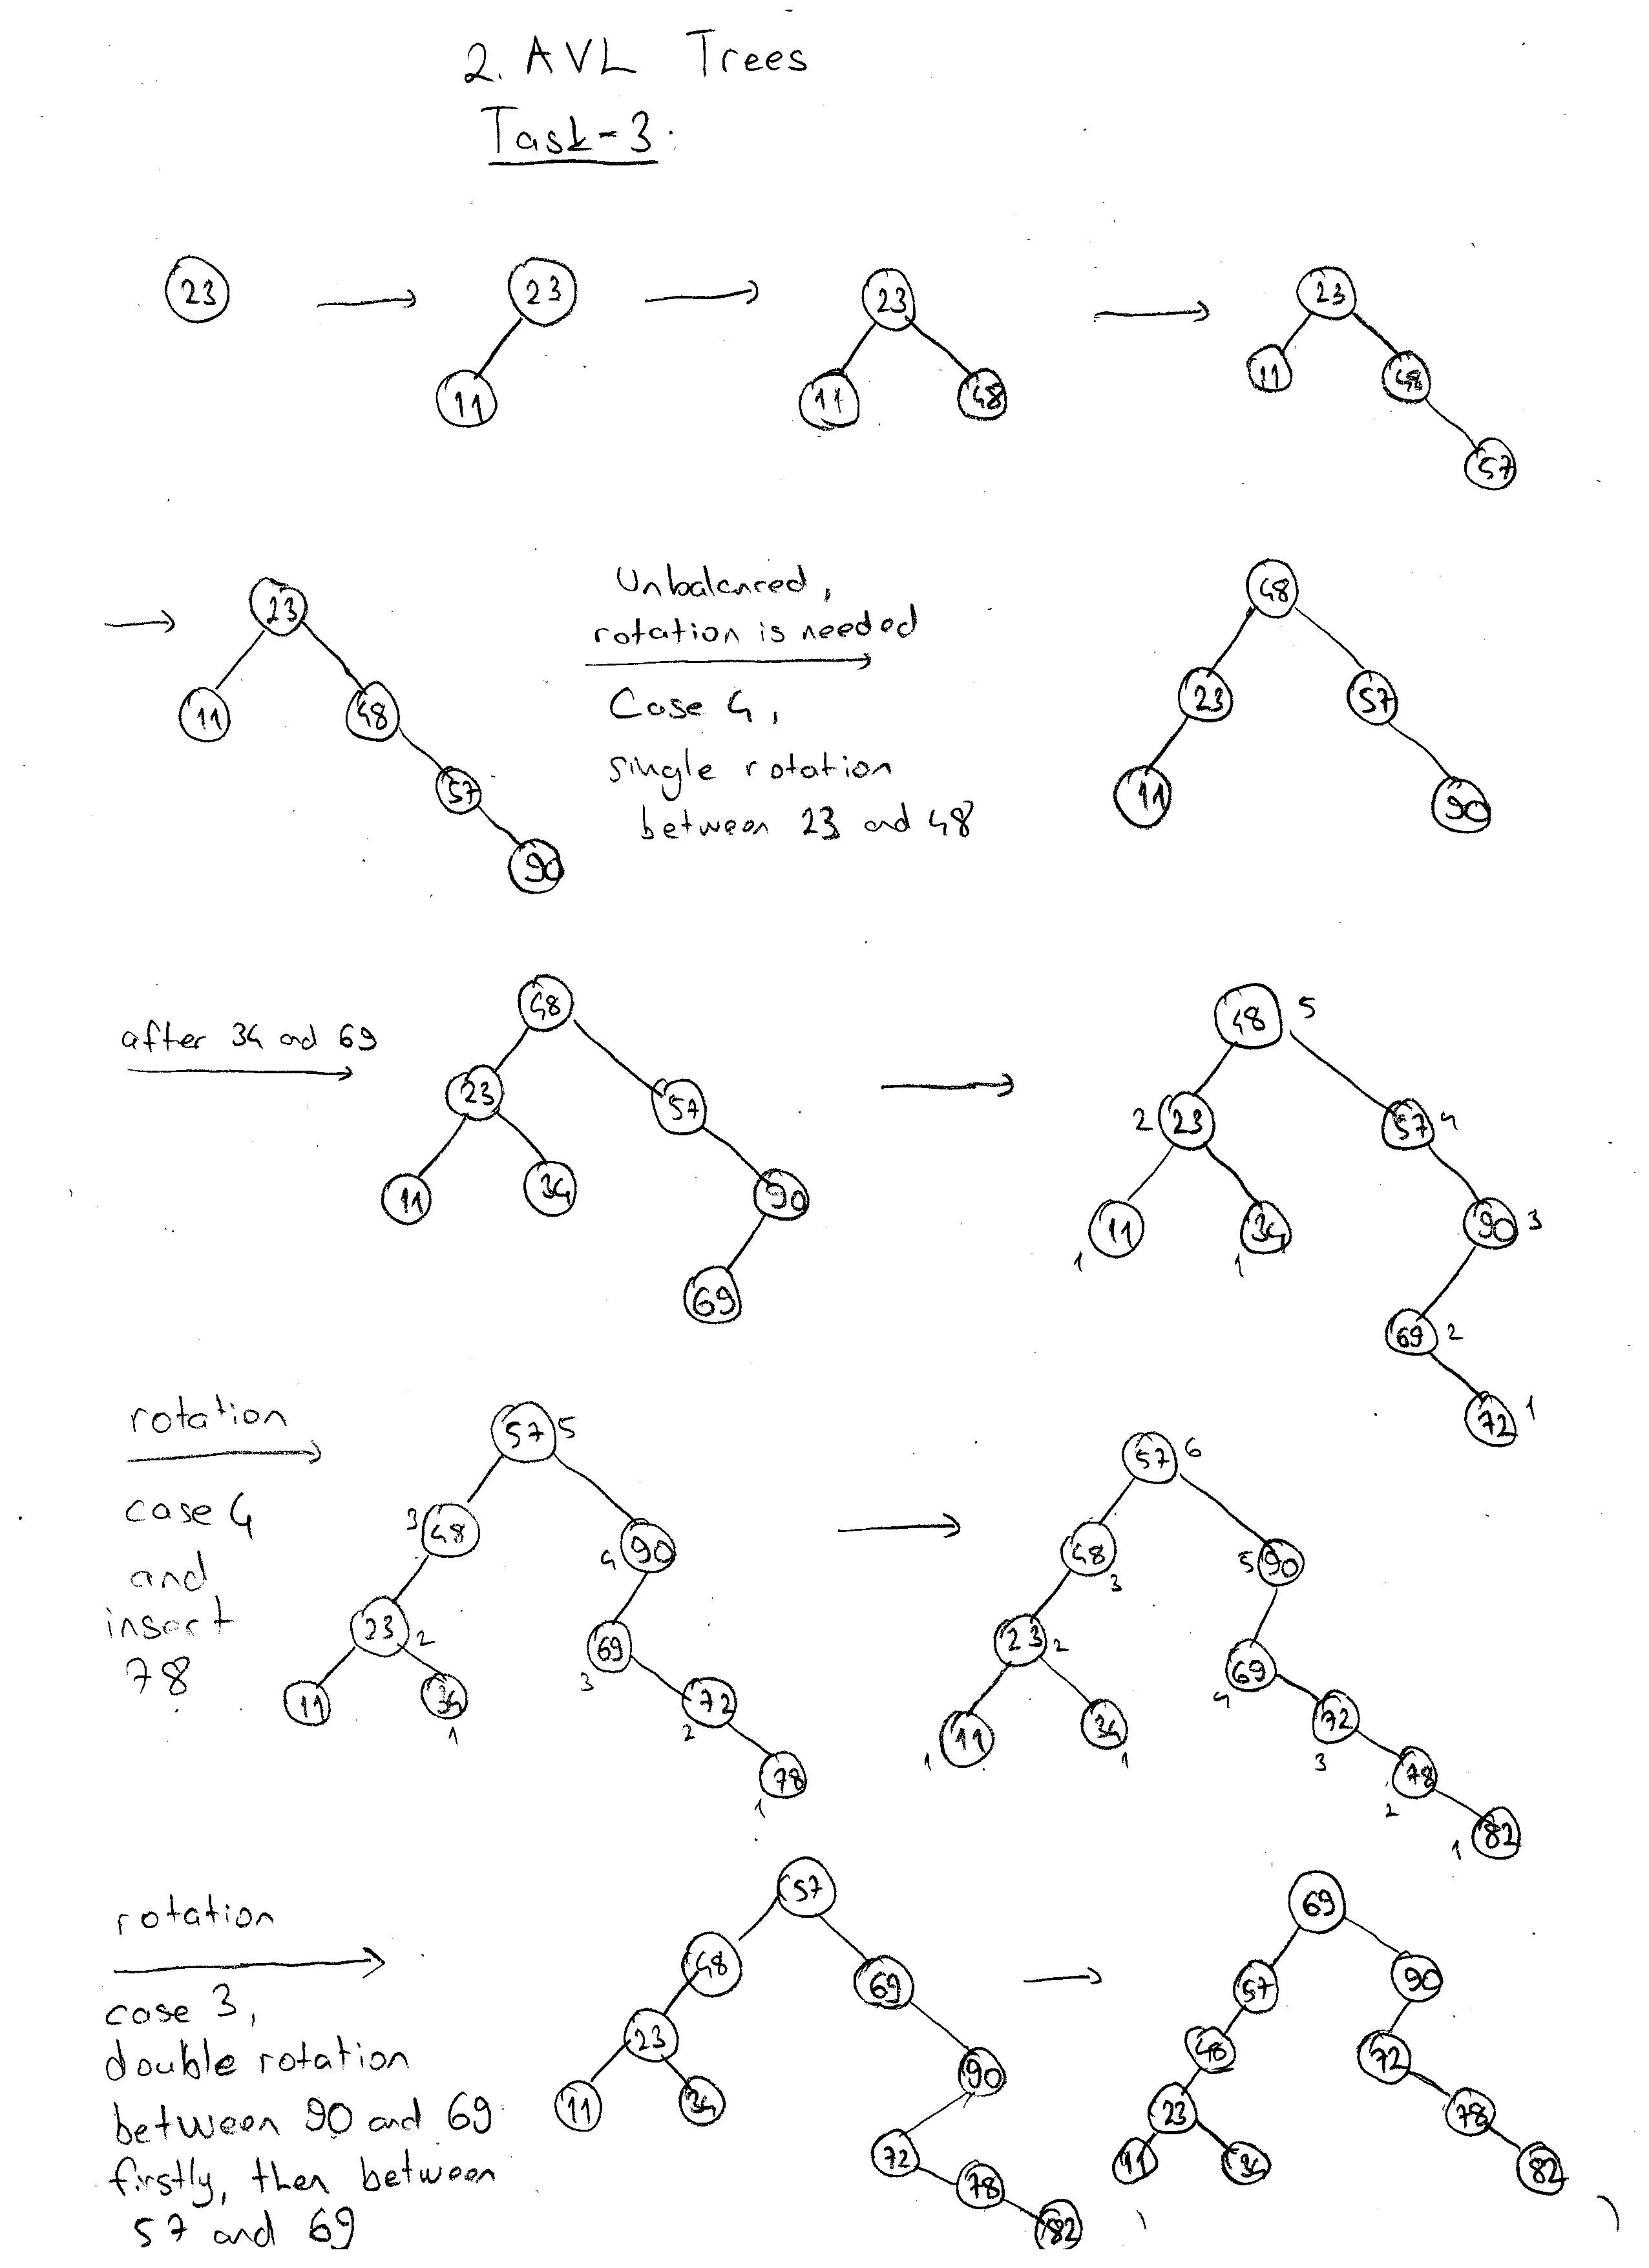 2. AVL Trees
Task-3
23
23
11
23
11 48
23
11 48
57
23
11 48
57
90
Unbalanced,
rotation is needed
Case 4,
single rotation
between 23 and 48
48
23 57
11 90
after 34 and 69
48
23 57
11 34 90
69
48 5
2 23 57 4
11 34 90 3
1 1
69 2
72 1
rotation
case 4
and
insert
78
57 5
3 48 4 90
23 2 69
3
11 34 72
1 2
78
1
57 6
48 5 90
3
23 2 69
4
11 34 72
1 1 3
78
2
1 82
rotation
case 3,
double rotation
between 90 and 69
firstly, then between
57 and 69
57
48 69
23 90
11 34 72
78
82
69
57 90
48 72
23 78
11 34 82